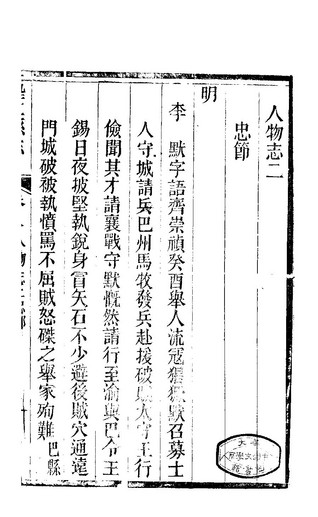 人物志二
忠節
明
李 默字語齊崇禎癸酉舉人流寇猖獗默召募士
人守城請兵巴州馬牧發兵赴援破賊太守王行
儉聞其才請襄戰守默慨然請行至渝與巴令王
錫日夜披堅執銳身冒矢石不少避後賊穴通遠
門城破被執憤罵不屈賊怒磔之舉家殉難巴縣
人物志